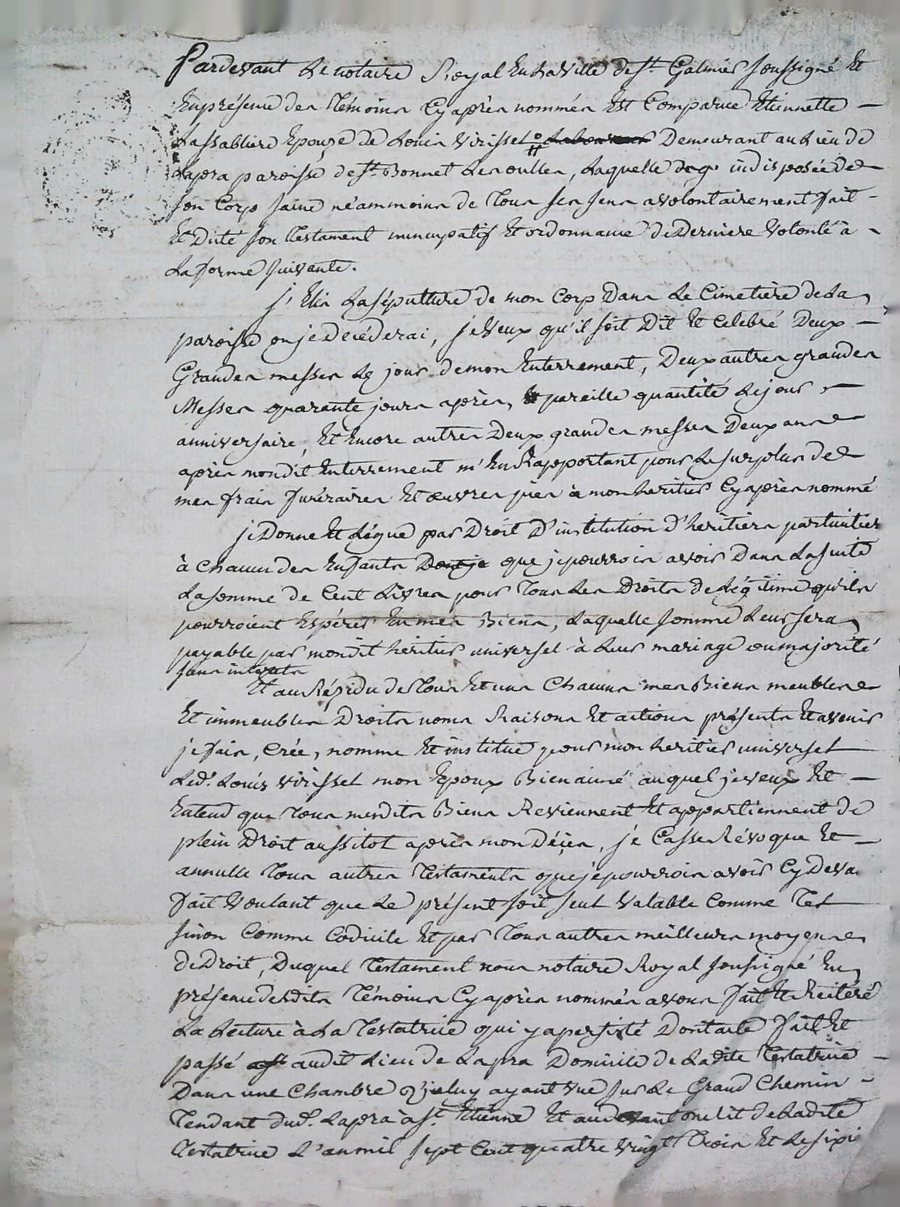 Pardevant Le notaire Royal En La Ville de St. Galmier soussigné Et
En présence des Témoins Cyaprès nommés Est Comparue Etiennette
Lassabliere Epouse de Louis Virisset Demeurant au Lieu de
Lapra paroisse de St. Bonnet Les oulles, Laquelle indisposée de
son Corp saine néammoins de Tous ses sens a volontairement fait
Et Dicté son Testament nuncupatif Et ordonnance de Derniere Volonté à
La forme suivante.
j'Elis La sépulture de mon Corp Dans Le Cimetière de La
paroisse ou je décéderai, je Veux qu'il soit Dit Et Celebré Deux
Grandes messes Le jour de mon Enterrement, Deux autres grandes
Messes quarante jours après, pareille quantité Le jour
anniversaire, Et Encore autres Deux grandes messes Deux ans
après mondit Enterrement m'En Rapportant pour Le surplus de
mes frais funéraires Et œuvres pies à mon heritier Cyaprès nommé
je Donne Et Légue par Droit D'institution D'heritiers particuliers
à Chacun des Enfants que je pourrois avoir Dans La suite
La somme de Cent Livres pour Tous Les Droits de Légitime qu'ils
pourroient Espérer En mes Biens, Laquelle somme Leur sera
payable par mondit héritier universel à Leur mariage ou majorité
sans interets
Et au Résidu de Tous Et uns Chacuns mes Biens meubles
Et immeubles Droits noms Raisons Et actions présents Et avenir
je fais, Crée, nomme Et institue pour mon heritier universel
Led. Louis Virisset mon Epoux Bien aimé auquel je veux Et
Entend que Tous mesdits Biens Reviennent Et appartiennent de
plein Droit aussitot après mon Décès, je Casse Révoque Et
annulle Tous autres Testaments que je pourrois avoir Cy Deva
fait Voulant que Le présent soit seul Valable Comme Tel
sinon Comme Codicile Et par Tous autres meilleurs moyens
de Droit, Duquel Testament nous notaire Royal soussigné En
présence desdits Témoins Cyaprès nommés avons fait Et Reitéré
La Lecture à La Testatrice qui y a persisté Dont acte fait Et
passé audit Lieu de Lapra Domicile de Ladite Testatrice
Dans une Chambre D'icelui ayant vue sur Le Grand Chemin
Tendant dud. Lapra à St. Etienne Et au devant du lit de Ladite
Testatrice L'an mil sept Cent quatre vingt Trois Et Le sixi